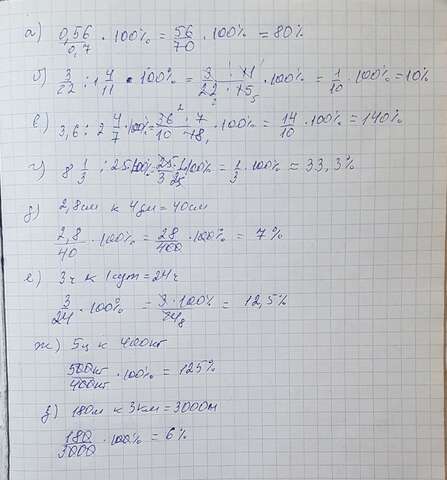 а) 0,56/0,7 · 100% = 56/70 · 100% = 80%
б) 3/22 : 1 4/11 · 100% = 3 · 11/22 · 15 · 100% = 1/10 · 100% = 10%
в) 3,6 : 2 4/7 · 100% = 36 · 7/10 · 18 · 100% = 14/10 · 100% = 140%
г) 8 1/3 : 25 · 100% = 25 · 1/3 · 25 · 100% = 1/3 · 100% = 33,3%
д) 2,8см к 4дм = 40см
2,8/40 · 100% = 28/400 · 100% = 7%
е) 3ч к 1сут = 24ч
3/24 · 100% = 3 · 100%/24 8 = 12,5%
ж) 5ц к 400кг
500кг/400кг · 100% = 125%
з) 180м к 3км = 3000м
180/3000 · 100% = 6%